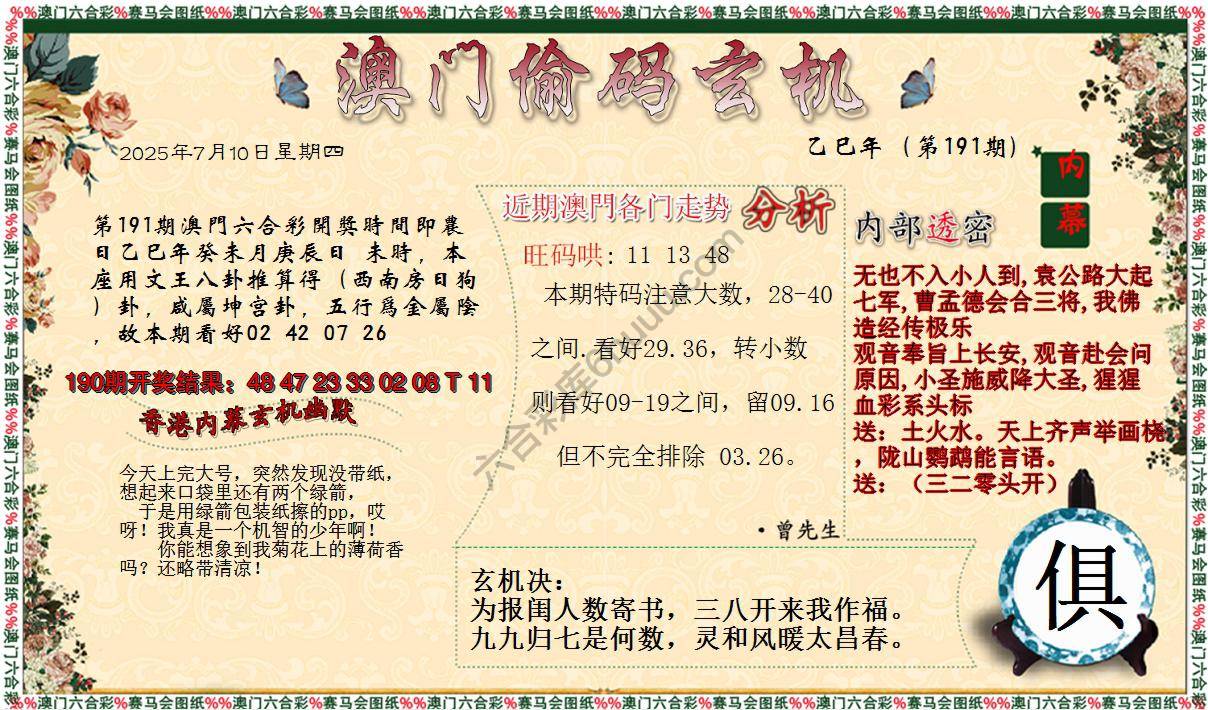 %%澳门六合彩%赛马会图纸%%澳门六合彩%赛马会图纸%%澳门六合彩%赛马会图纸%%澳门六合彩%赛马会图纸%%澳门六合彩%赛马会图纸%%澳门六合彩%赛马会图纸%%
澳门偷码玄机
2025年7月10日星期四
乙巳年 (第191期)
内幕
第191期澳門六合彩開獎時間即農
日乙巳年癸未月庚辰日 未時，本
座用文王八卦推算得（西南房日狗
）卦，咸屬坤宫卦，五行爲金屬陰
，故本期看好02 42 07 26
190期开奖结果：48 47 23 33 02 08 T 11
香港内幕玄机幽默
今天上完大号，突然发现没带纸，
想起来口袋里还有两个绿箭，
于是用绿箭包装纸擦的pp，哎
呀！我真是一个机智的少年啊！
你能想象到我菊花上的薄荷香
吗？还略带清凉！
近期澳門各门走势 分析
旺码哄: 11 13 48
本期特码注意大数，28-40
之间.看好29.36，转小数
则看好09-19之间，留09.16
但不完全排除 03.26。
·曾先生
内部透密
无也不入小人到,袁公路大起
七军,曹孟德会合三将,我佛
造经传极乐
观音奉旨上长安,观音赴会问
原因,小圣施威降大圣,猩猩
血彩系头标
送：土火水。天上齐声举画桡
，陇山鹦鹉能言语。
送：（三二零头开）
玄机决：
为报闺人数寄书，三八开来我作福。
九九归七是何数，灵和风暖太昌春。
俱